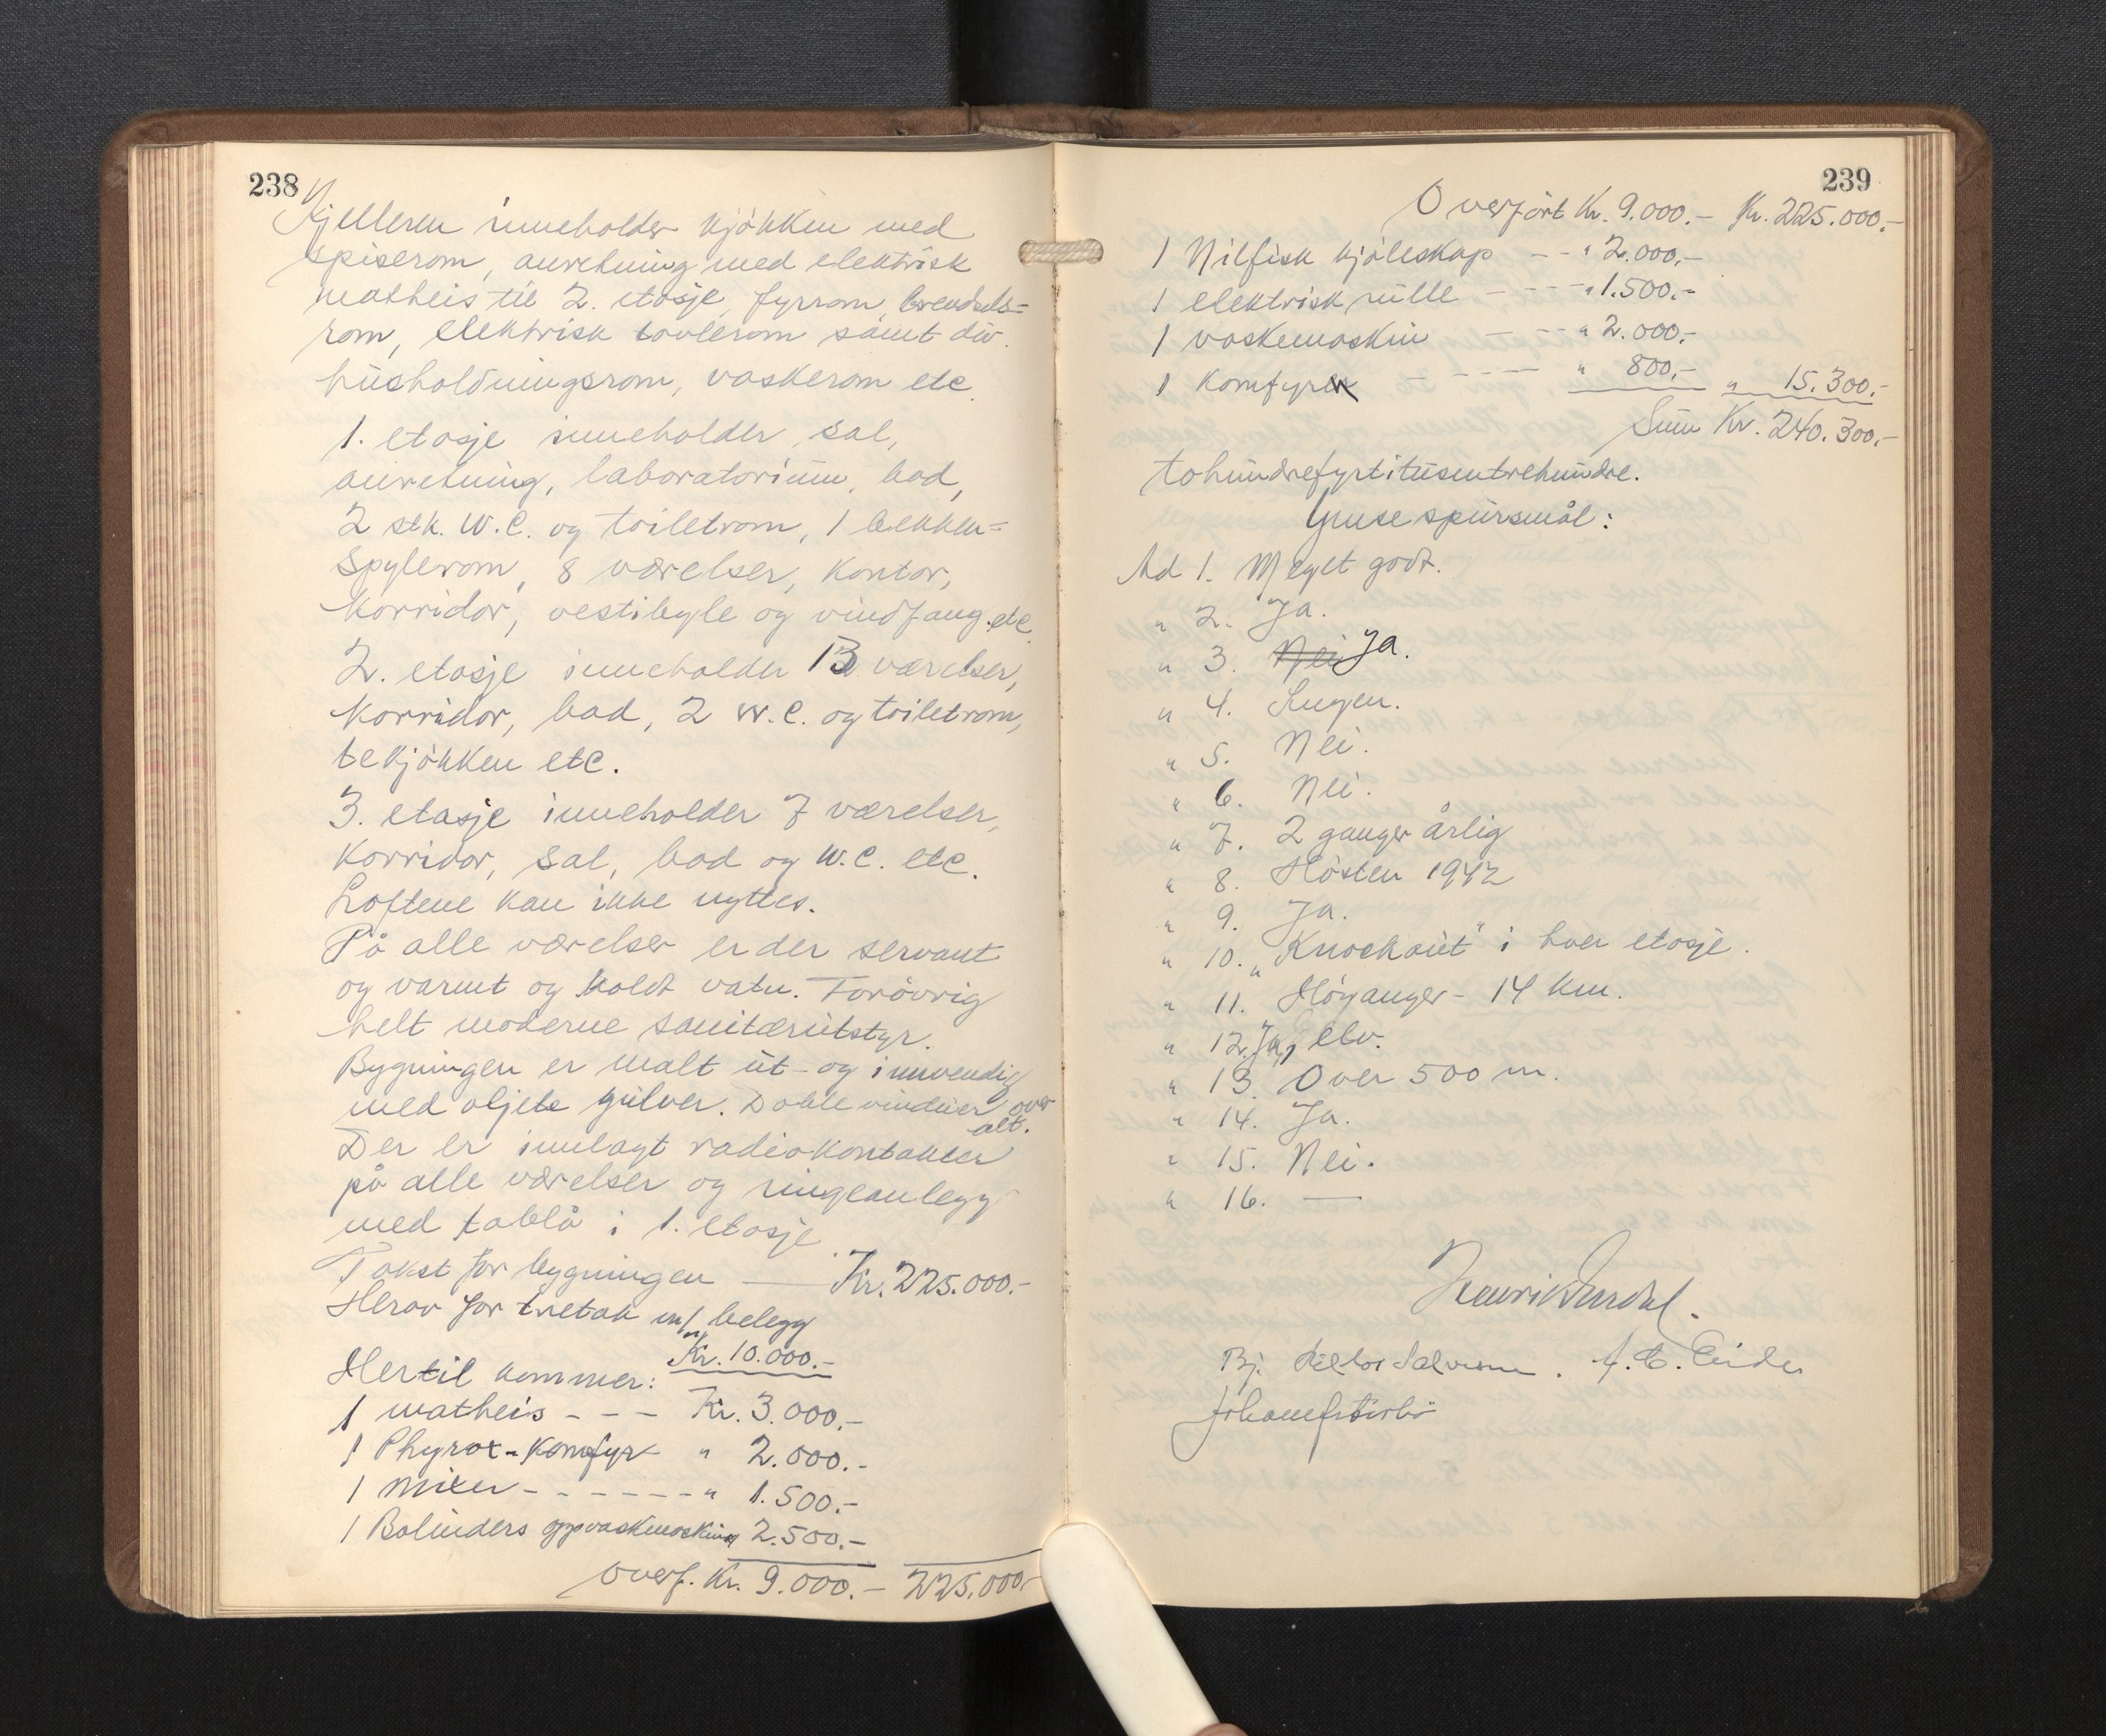 238
Kjelleren inneholder kjökken med
spiserom, anretning med elektrisk
matheis til 2. etasje, fyrrom, brendsels-
rom, elektrisk tavlerom samt div.
husholdningsrom, vaskerom etc.
1. etasje inneholder sal,
anretning, laboratorium, bad,
2 stk. W.C. og toiletrom, 1 bekken-
spylerom, 8 værelser, kontor,
korridor, vestibyle og vindfang etc.
2. etasje inneholder 13 værelser,
korridor, bad, 2 W.C. og toiletrom,
tekjökken etc.
3. etasje inneholder 7 værelser,
korridor, sal, bad og W.C. etc.
Loftene kan ikke nyttes.
På alle værelser er der servant
og varmt og koldt vatn. Forövrig
helt moderne sanitærutstyr.
Bygningen er malt ut- og innvendig
med oljete gulver. Doble vinduer over
alt.
Der er innlagt radiokontakter
på alle værelser og ringeanlegg
med tablå i 1. etasje.
Takst for bygningen — Kr. 225.000.-
Herav for tretak m/ belegg
Kr. 10.000.-
Hertil kommer:
1 matheis - - - Kr. 3.000.-
1 Phyrox-Komfyr " 2.000.-
1 mixer - - - - - - " 1.500.-
1 Bolinders oppvaskmaskin " 2.500.-
overf. Kr. 9.000.- 225.000.-
239
Overfört Kr. 9.000.- Kr. 225.000.-
1 Nilfisk kjöleskap - - " 2.000.-
1 elektrisk rulle - - - - " 1.500.-
1 vaskemaskin - - - " 2.000.-
1 komfyr - - - - - " 800.- " 15.300.-
Sum Kr. 240.300.-
tohundrefyrtitusentrehundre.
Ymse spursmål:
Ad 1. Meget godt.
" 2. Ja.
" 3. Nei Ja.
" 4. Ingen.
" 5. Nei.
" 6. Nei.
" 7. 2 ganger årlig
" 8. Hösten 1942
" 9. Ja.
" 10. „Knockout" i hver etasje.
" 11. Höyanger - 14 km.
" 12. Ja, elv.
" 13. Over 500 m.
" 14. Ja.
" 15. Nei.
" 16. —